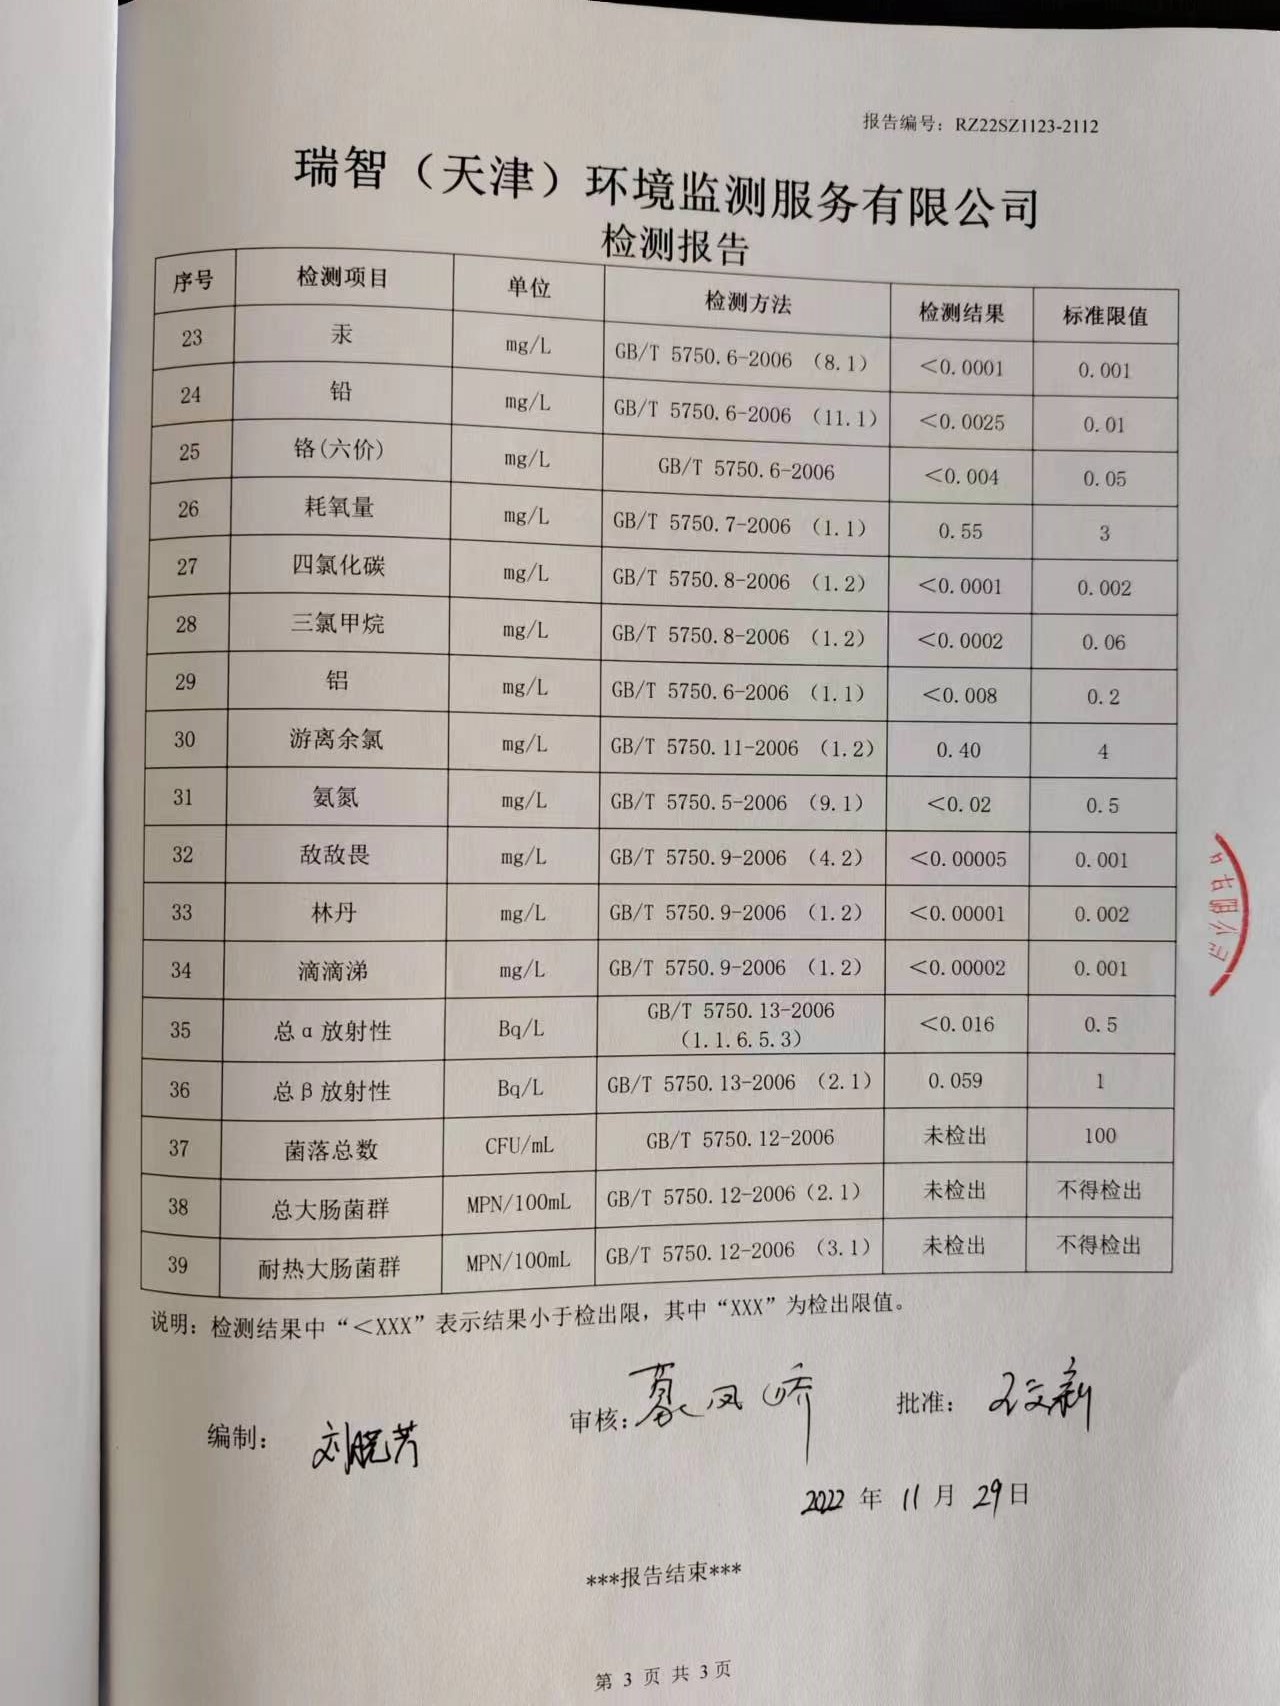 报告编号：RZ22SZ1123-2112
瑞智（天津）环境监测服务有限公司
检测报告
序号 检测项目 单位 检测方法 检测结果 标准限值
23 汞 mg/L GB/T 5750.6-2006 （8.1） <0.0001 0.001
24 铅 mg/L GB/T 5750.6-2006 （11.1） <0.0025 0.01
25 铬(六价) mg/L GB/T 5750.6-2006 <0.004 0.05
26 耗氧量 mg/L GB/T 5750.7-2006 （1.1） 0.55 3
27 四氯化碳 mg/L GB/T 5750.8-2006 （1.2） <0.0001 0.002
28 三氯甲烷 mg/L GB/T 5750.8-2006 （1.2） <0.0002 0.06
29 铝 mg/L GB/T 5750.6-2006 （1.1） <0.008 0.2
30 游离余氯 mg/L GB/T 5750.11-2006 （1.2） 0.40 4
31 氨氮 mg/L GB/T 5750.5-2006 （9.1） <0.02 0.5
32 敌敌畏 mg/L GB/T 5750.9-2006 （4.2） <0.00005 0.001
33 林丹 mg/L GB/T 5750.9-2006 （1.2） <0.00001 0.002
34 滴滴涕 mg/L GB/T 5750.9-2006 （1.2） <0.00002 0.001
35 总α放射性 Bq/L GB/T 5750.13-2006 （1.1.6.5.3） <0.016 0.5
36 总β放射性 Bq/L GB/T 5750.13-2006 （2.1） 0.059 1
37 菌落总数 CFU/mL GB/T 5750.12-2006 未检出 100
38 总大肠菌群 MPN/100mL GB/T 5750.12-2006（2.1） 未检出 不得检出
39 耐热大肠菌群 MPN/100mL GB/T 5750.12-2006 （3.1） 未检出 不得检出
说明：检测结果中“<XXX”表示结果小于检出限，其中“XXX”为检出限值。
编制： 刘晓芳 审核： 凤娇 批准： 文新
2022 年 11 月 29 日
***报告结束***
第 3 页 共 3 页